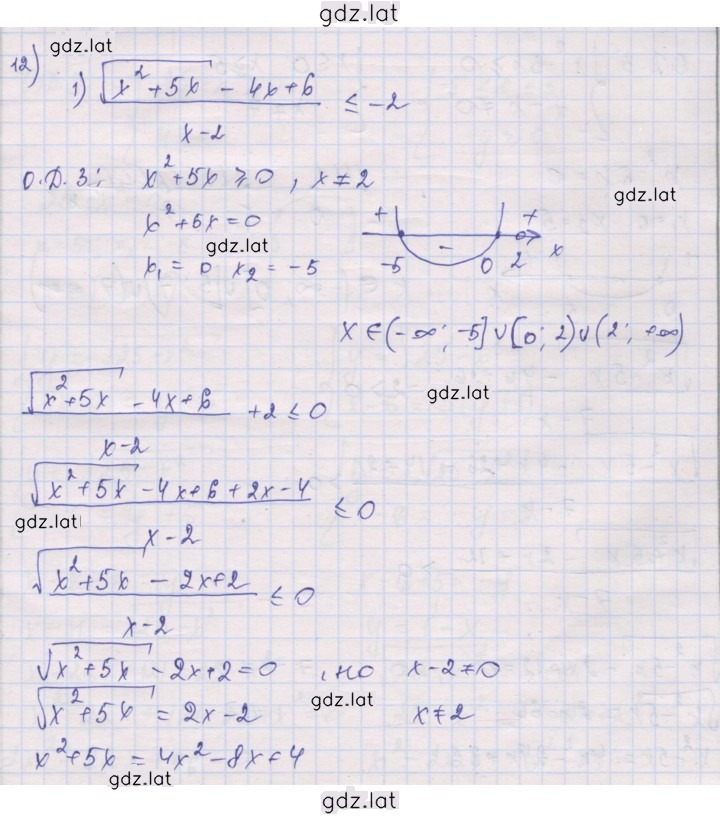 gdz.lat
12) gdz.lat
1) (√(x²+5x) - 4x+6)/(x-2) ≤ -2
О.Д.З: x²+5x ≥ 0, x≠2
gdz.lat
x²+5x=0
+ - +
gdz.lat
-5 0 2 x
x₁ = 0 x₂ = -5
x∈(-∞; -5]∪[0; 2)∪(2; +∞)
(√(x²+5x) - 4x+6)/(x-2) +2 ≤ 0
gdz.lat
(√(x²+5x) - 4x+6+2x-4)/(x-2) ≤ 0
gdz.lat
(√(x²+5x) - 2x+2)/(x-2) ≤ 0
√(x²+5x) - 2x+2=0, но x-2≠0
gdz.lat
√(x²+5x) = 2x-2 x≠2
x²+5x = 4x²-8x+4
gdz.lat
gdz.lat